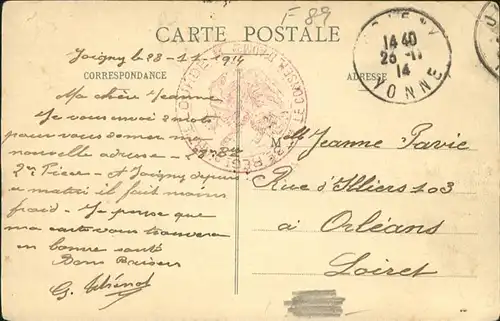 F 89
CARTE POSTALE
Joigny le 23-11-1914
CORRESPONDANCE
ADRESSE
14 40
26-11
14
YONNE
Ma chère Jeanne
Je vous envoi 2 mots
pour vous donner ma
nouvelle adresse -
2me Pièce - St Joigny depuis
ce matin il fait moins
froid - Je pense que
ma carte vous trouvera
en bonne santé
Bons Baisers
G.
Mlle Jeanne Pavie
Rue d'Illiers 103
à Orléans
Loiret